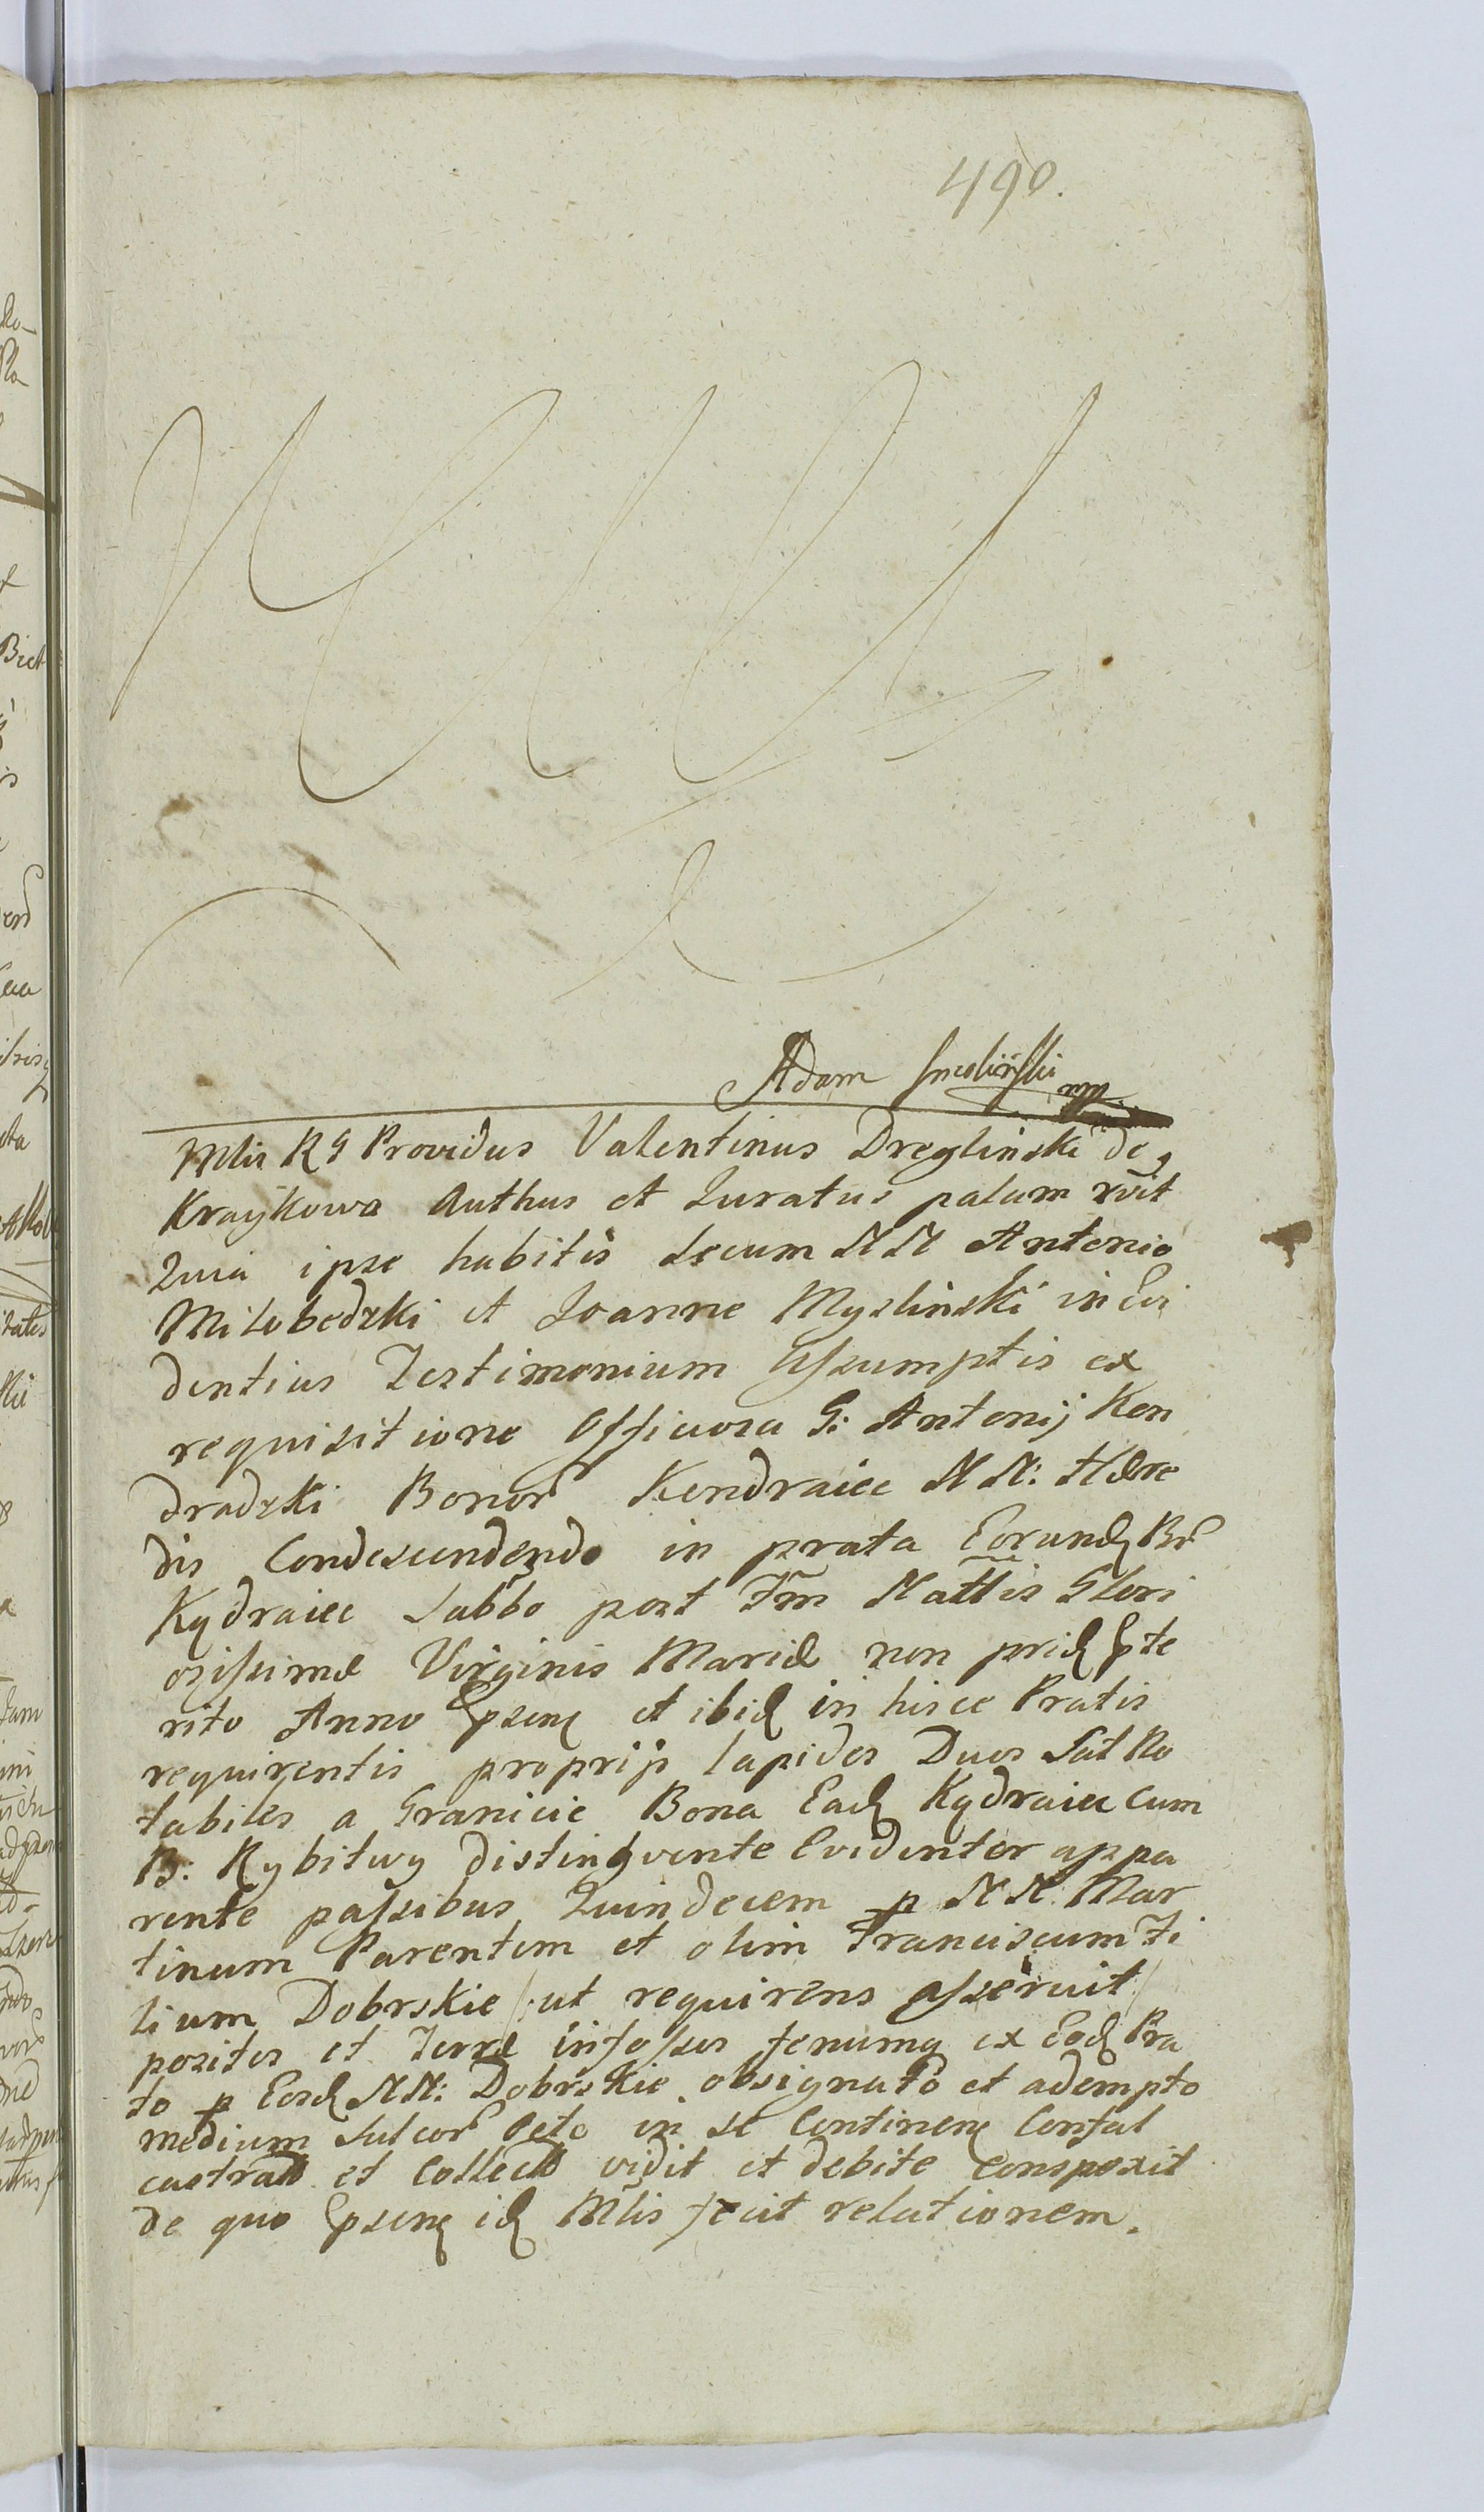 490.
Adam Smolinski mp
Mlis RG Providus Valentinus Dreglinski de
Kraykowa Authus et Juratus palam rvit
Quia ipse habitis secum NN Antonio
Milobedzki et Joanne Myslinski in Evi
dentius Testimonium Assumptis ex
requisitione Officiosa G: Antonij Ken
dradzki Bonor Kendraiec NN: Hære
dis Condescendendo in prata Eorund Br
Kydraiec Sabbo post Fm Nattis Glori
osissimæ Virginis Mariæ non prid Pte
rito Anno Psens et ibid in hisce Pratis
requirentis proprijs lapides Duos Sat No
tabiles a Granicie Bona Ead Kydraiec cum
B: Rybitwy distingvente Evidenter appa
rente passibus Quindecem p NN: Mar
tinum Parentem et olim Franciscum Fi
lium Dobrskie / ut requirens asseruit /
positos et Terræ infossos fenumq ex Eod Pra
to p Eosd NN: Dobrskie obsignato et adempto
medium sulcor Octo in se Continens Confal
castratt et Collectt vidit et debite conspexit
de quo Psens id Mlis fecit relationem.